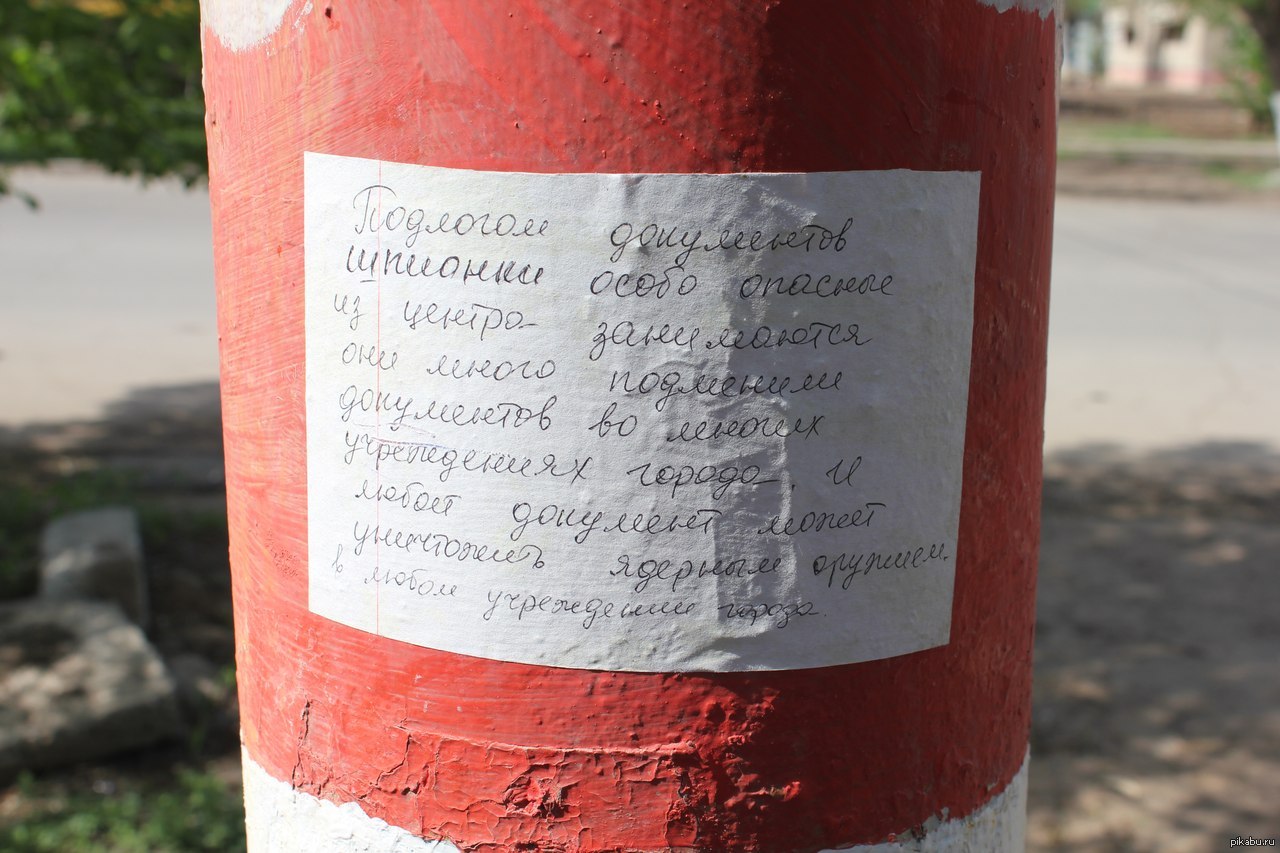 Подлогом документов
шпионки особо опасные
из центра занимаются
они много подменили
документов во многих
учреждениях города. И
любой документ может
уничтожить ядерным оружием.
в любом учреждении города.
pikabu.ru